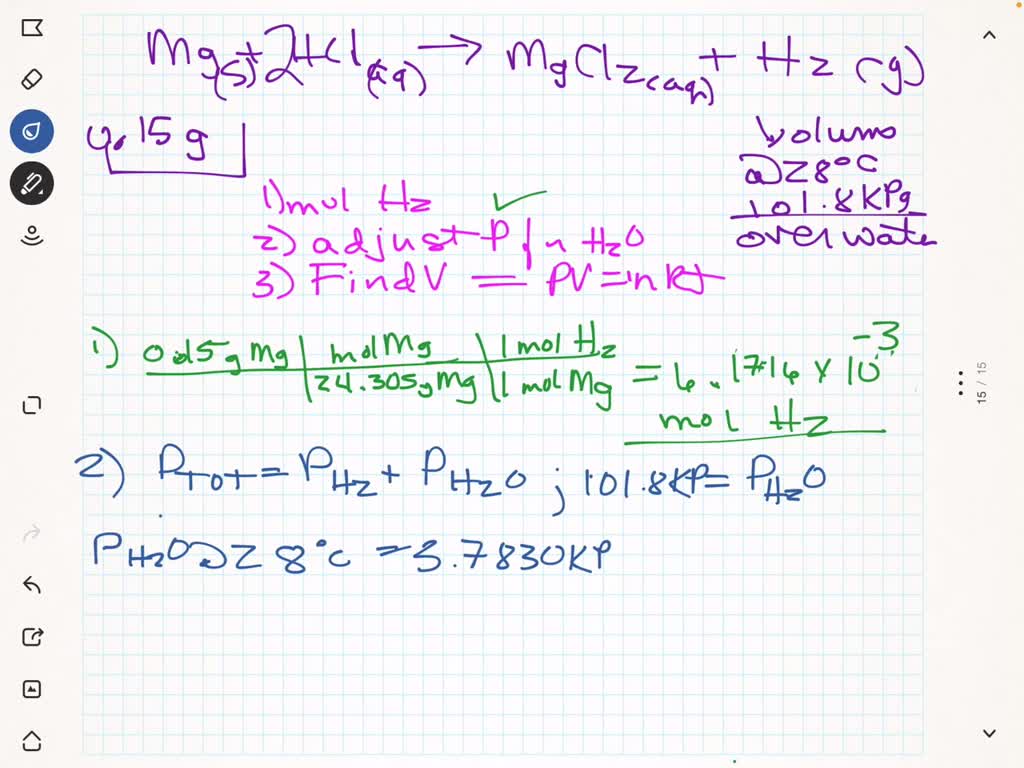 Mg(s) + 2HCl(aq) → MgCl2(aq) + H2 (g)
0.15 g
Volume
@ 28°C
101.8 KPa
over water
1) mol H2 ✓
2) adjust P fn H2O
3) Find V = PV=nRT
1) 0.15g Mg | mol Mg | 1 mol H2
24.305g Mg | 1 mol Mg
= 6.1716 × 10^-3
mol H2
2) PTOT = PH2 + PH2O ; 101.8KP = PH2O
PH2O @ 28°C = 3.7830KP
15 / 15